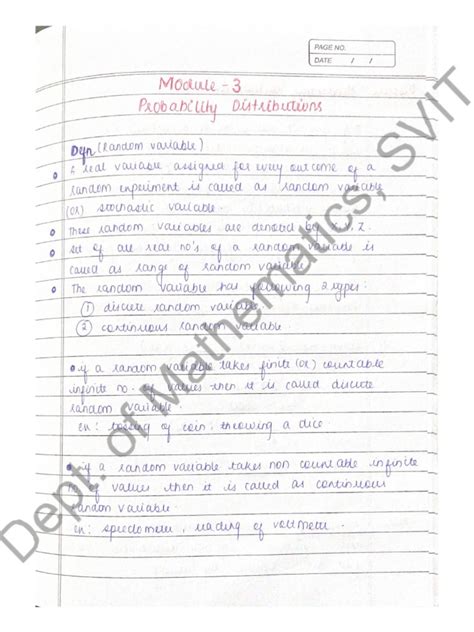 PAGE NO.
DATE / /
Module - 3
Probability Distributions
Dfn (Random variable)
A real variable assigned for every outcome of a
random experiment is called as random variable
(or) stochastic variable.
These random variables are denoted by X, Y, Z.
set of all real no's of a random variable is
called as range of random variable
The random variable has following 2 types:
① discrete random variable
② continuous random variable
if a random variable takes finite (or) countable
infinite no. of values then it is called discrete
random variable.
en: tossing of coin: throwing a dice
if a random variable takes non countable infinite
no of values then it is called as continuous
random variable
en: speedometer, reading of voltmeter.
Dept. of Mathematics, SVIT